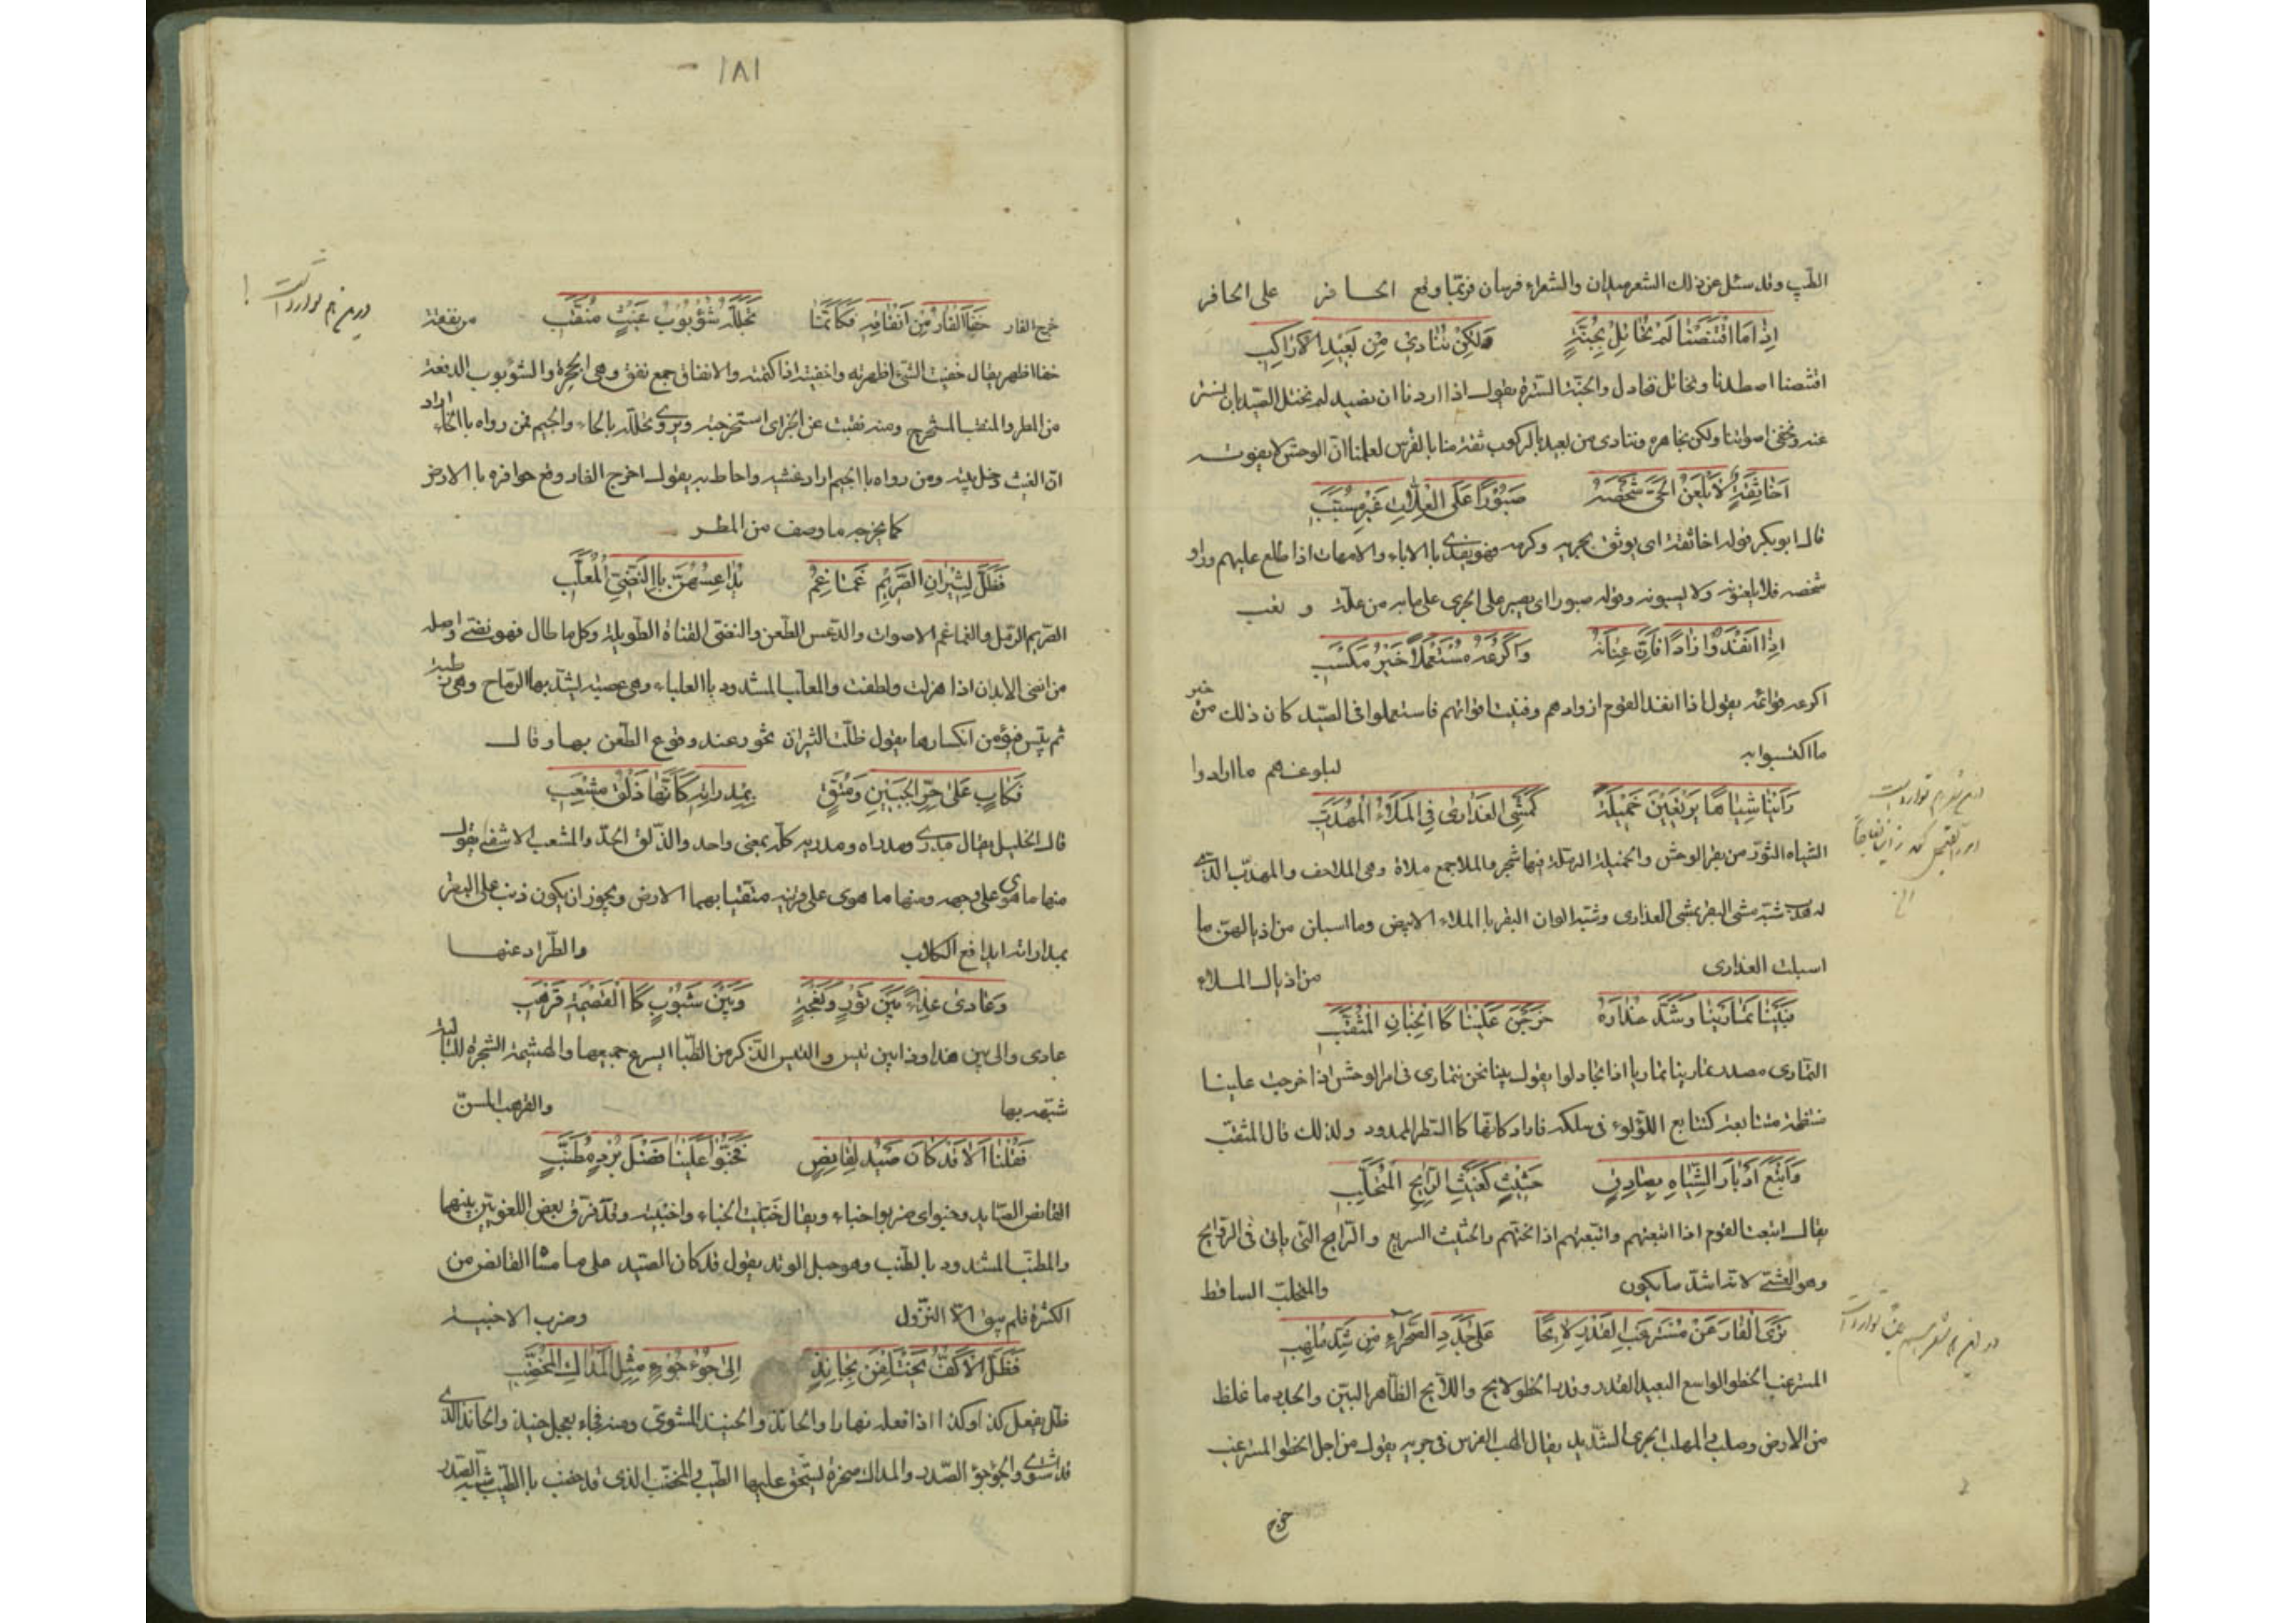 الطيب وقد سئل عن ذلك الشعر ميدان والشعراء فرسان فربّما وقع الحافر على الحافر
اِذا ما اقْتَنَصْنا لَمْ نُخاتِلْ بِجُنَّةٍ وَلكِنْ نُنادي مِنْ بَعيدٍ اَلا ارْكَبِ
اقتنصنا اصطدنا ونخاتل نخادل والجنّة السترة يقول اذا اردنا ان نصيد لم نختل الصيد بان نستتر
عنه ونخفى اصواتنا ولكن نجاهره وننادى من بعيد بالركوب ثقة منا بالفرس لعلمنا انّ الوحش لا يفوته
اَخا ثِقَةٍ لا يَلْعَنُ الْحَيُّ شَخْصَهُ صَبُوراً عَلَى الْعِلّاتِ غَيْرَ مُسَبَّبِ
قال ابو بكر قوله اخا ثقة اى يوثق بجريه وكرمه فهو يفدى باالاباء والامهات اذا طلع عليهم وراو
شخصه فلا يلعنونه ولا يسبونه وقوله صبورا اى يصبر على الجرى على ما به من علّة و تعب
اِذا اَنْفَدُوا زاداً فَاِنَّ عِنانَهُ وَاَكْرُعَهُ مُسْتَعْمَلاً خَيْرُ مَكْسَبِ
اكرعه قوائمه يقول اذا انفد القوم ازوادهم وفنيت اقواتهم فاستعملوا فى الصيد كان ذلك من خير
ما اكتسبوا به لبلوغهم ما ارادوا
رَاَيْنا شِياهاً يَرْتَعِينَ خَمِيلَةً كَمَشْيِ الْعَذارى فِي الْمُلاءِ الْمُهَدَّبِ
الشياه الثور من بقر الوحش والخميلة الرملة فيها شجر والملا جمع ملاة وهى الملاحف والمهدّب الذي
له هدب شبّه مشى البقر بمشى العذارى وشبّه الوان البقر باالملاء الابيض وما اسبلن من اذيالهن ما
اسبلت العذارى من اذيال الملاء
فَبَيْنا تَمارينا وَشَدُّ عِذارِهِ خَرَجْنَ عَلَيْنا كَا الْجُمانِ الْمُثَقَّبِ
التمارى مصدر تمارينا تماريا اذا تجادلوا يقول بينا نحن نتمارى فى امر الوحش اذا خرجت علينا
منتظمة متتابعة كتتابع اللؤلوء فى سلكه فاراد كانها كا النظر الممدود ولذلك قال المثقب
وَاَتْبَعَ اَدْبارَ الشِّياهِ بِصادِقٍ حَثيثٍ كَغَيْثِ الرّائِحِ الْمُتَحَلِّبِ
يقال اتبعت القوم اذا اتبعتهم واتّبعتهم اذا لحقتهم والحثيث السريع والرائح التى ياتى فى الروائح
وهو العشي لانه اشدّ ما يكون والمتحلب الساقط
تَرَى الْفارَ عَنْ مُسْتَرْغَبِ الْقَدْرِ لائِحاً عَلى جَدَدِ الصَّحْراءِ مِنْ شَدِّ مُلْهِبِ
المسترغب الخطو الواسع البعيد القدر وقدر الخطو لايح واللائح الظاهر البيّن والجدد ما غلظ
من الارض وصلب والملهب الجرى الشديد يقال الهب الفرس فى جريه يقول من اجل الخطو المسترغب
خرج
١٨١
خرج الفار خَفَا الْفارَ مِنْ اَنْفاقِهِ فَكَاَنَّما تَجَلَّلَهُ شُؤْبُوبُ غَيْثٍ مُنَقِّبِ من نفقه
خفا اظهر يقال خفيت الشىء اظهرته واخفيته اذا كتمته والانفاق جمع نفق وهى الجحرة والشؤبوب الدفعة
من المطر والمنقب المستخرج ومنه نقبت عن الخبر اى استخرجته ويروى تخلّله بالخاء والجيم فمن رواه باالخاء اراد
انّ الغيث دخل بيته ومن رواه باالجيم اراد غشيه واحاط به يقول اخرج الفار وقع حوافره باالارض
كما يخرجه ما وصف من المطر
فَظَلَّ لِثِيرانِ الصَّريمِ غَماغِمٌ يُداعِسُهُنَّ بِاالنَّضِيِّ الْمُعَلَّبِ
الصريم الرمل والغماغم الاصوات والدعس الطعن والنضى القناة الطويلة وكل ما طال فهو نضي واصله
من انضى الابدان اذا هزلت ولطفت والمعلّب المشدود باالعلباء وهى عصبة تشدّ بها الرماح وهى رطبة
ثم تيبس فيؤمن انكسارها يقول ظلّت الثيران تخور عند وقوع الطعن بها وقال
فَكابٍ عَلى حُرِّ الْجَبينِ وَمُتَّقٍ بِمَدْراتِهِ كَاَنَّها ذَلْقُ مِشْعَبِ
قال الخليل يقال مدرى ومدراه ومدريه كلّه بمعنى واحد والذلق الحدّ والمشعب الاشفى يقول
منها ما هوى على وجهه ومنها ما هوى على قرنيه متقيا بهما الارض ويجوز ان يكون ذبّ على البقر
بمدارانه ايدافع الكلاب والطراد عنها
وَعادى عِداءً بَيْنَ ثَوْرٍ وَنَعْجَةٍ وَبَيْنَ شَبُوبٍ كَا الْقَضيمَةِ قَرْهَبِ
عادى والى بين هذا وذا بين تيس والتيس الذكر من الظبا السرع جميعها والهشيمة الشجرة اليابسة
شبّهه بها والقرهب المسنّ
فَقُلْنا اَلا قَدْ كانَ صَيْدٌ لِقانِصٍ فَخَبُّوا عَلَيْنا فَضْلَ بُرْدٍ مُطَنَّبِ
القانص الصايد وخبوا اى ضربوا خباء ويقال خبّيت الخباء واخبيته وقد فرق بعض اللغويّين بينهما
والمطنّب المشدود باالطنب وهو حبل الوتد يقول قد كان الصيد على ما شا القانص من
الكثرة فلم يبق الّا النزول وضرب الاخبيه
فَظَلَّ الْاَكُفُّ يَخْتَلِفْنَ بِحانِذٍ اِلى جُؤْجُؤٍ مِثْلِ الْمَداكِ الْمُخَضَّبِ
ظلّ يفعل كذا وكذا اذا فعله نهارا والحانذ والحنيذ المشوىّ ومنه فجاء بعجل حنيذ والحانذ الذي
قد شوي والجؤجؤ الصدر والمداك صخرة يسحق عليها الطيب والمخضب الذى قد خضب باالطيب شبه الصدر